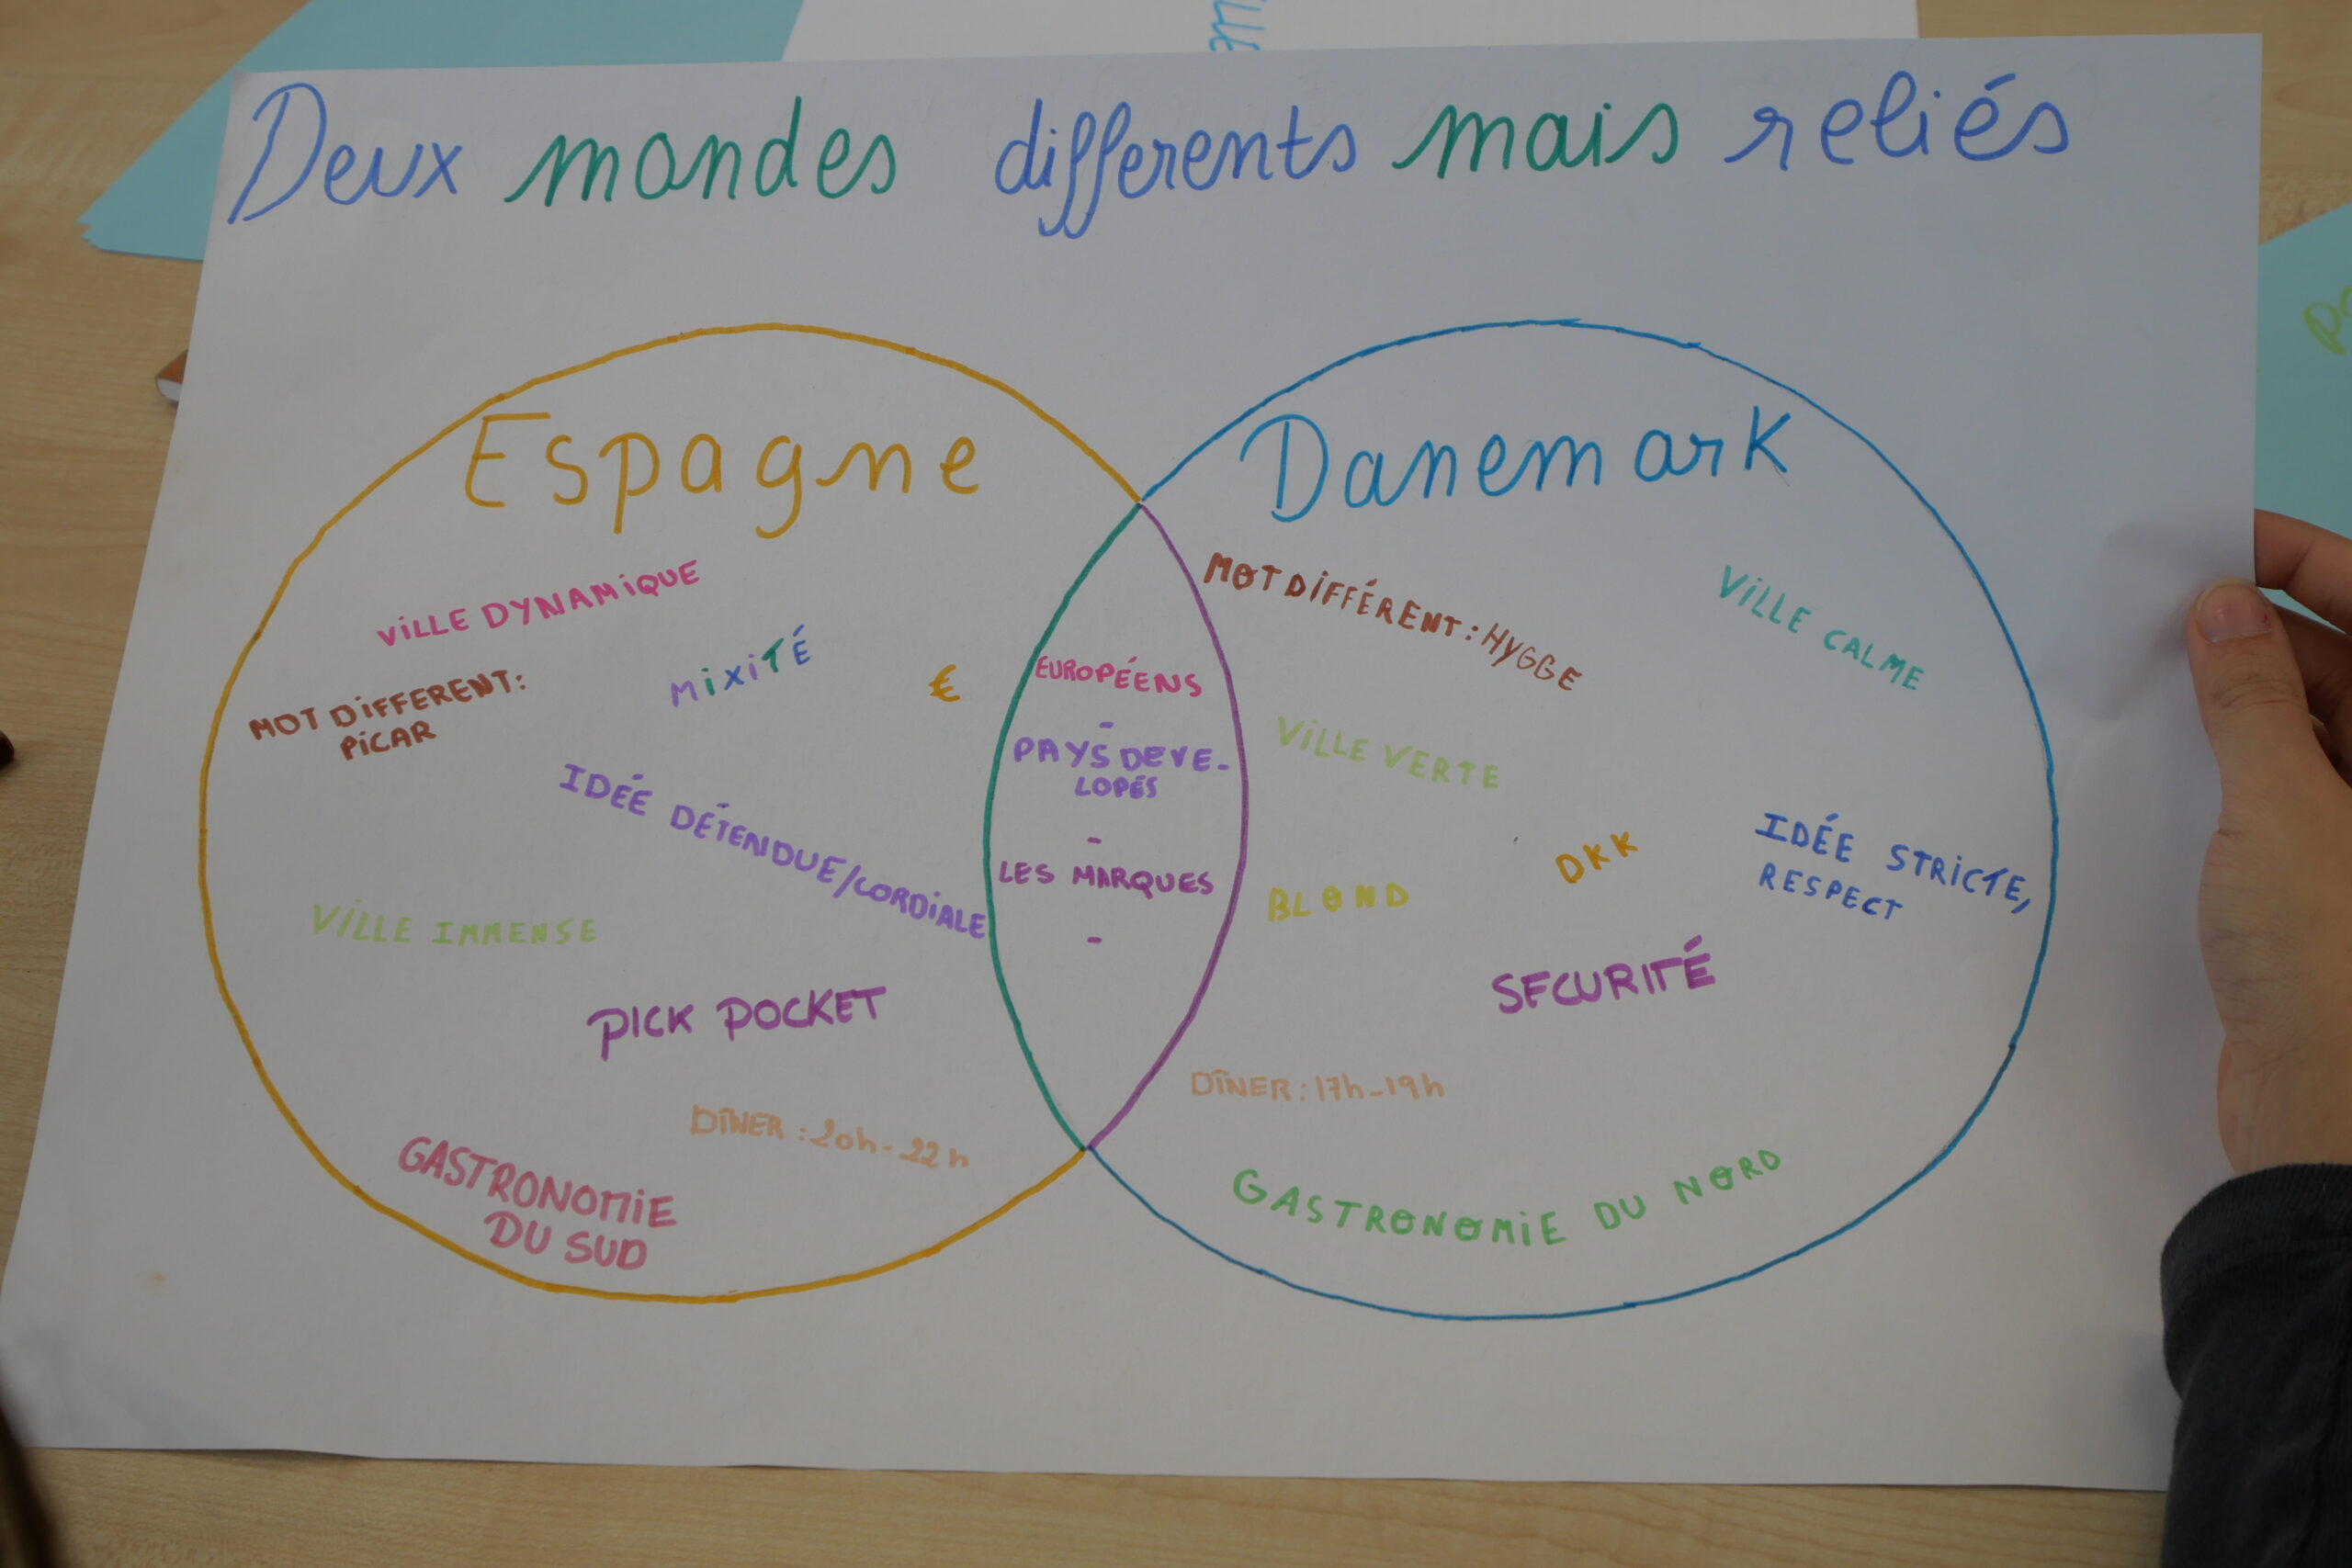 Deux mondes differents mais reliés
Espagne
VILLE DYNAMIQUE
MIXITÉ
€
MOT DIFFERENT:
PICAR
IDÉE DÉTENDUE/CORDIALE
VILLE IMMENSE
PICK POCKET
DÎNER : 20h - 22h
GASTRONOMIE
DU SUD
EUROPÉENS
-
PAYS DEVE-
LOPÉS
-
LES MARQUES
-
Danemark
MOT DIFFÉRENT : HYGGE
VILLE CALME
VILLE VERTE
DKK
IDÉE STRICTE,
RESPECT
BLOND
SECURITÉ
DÎNER : 17h - 19h
GASTRONOMIE DU NORD